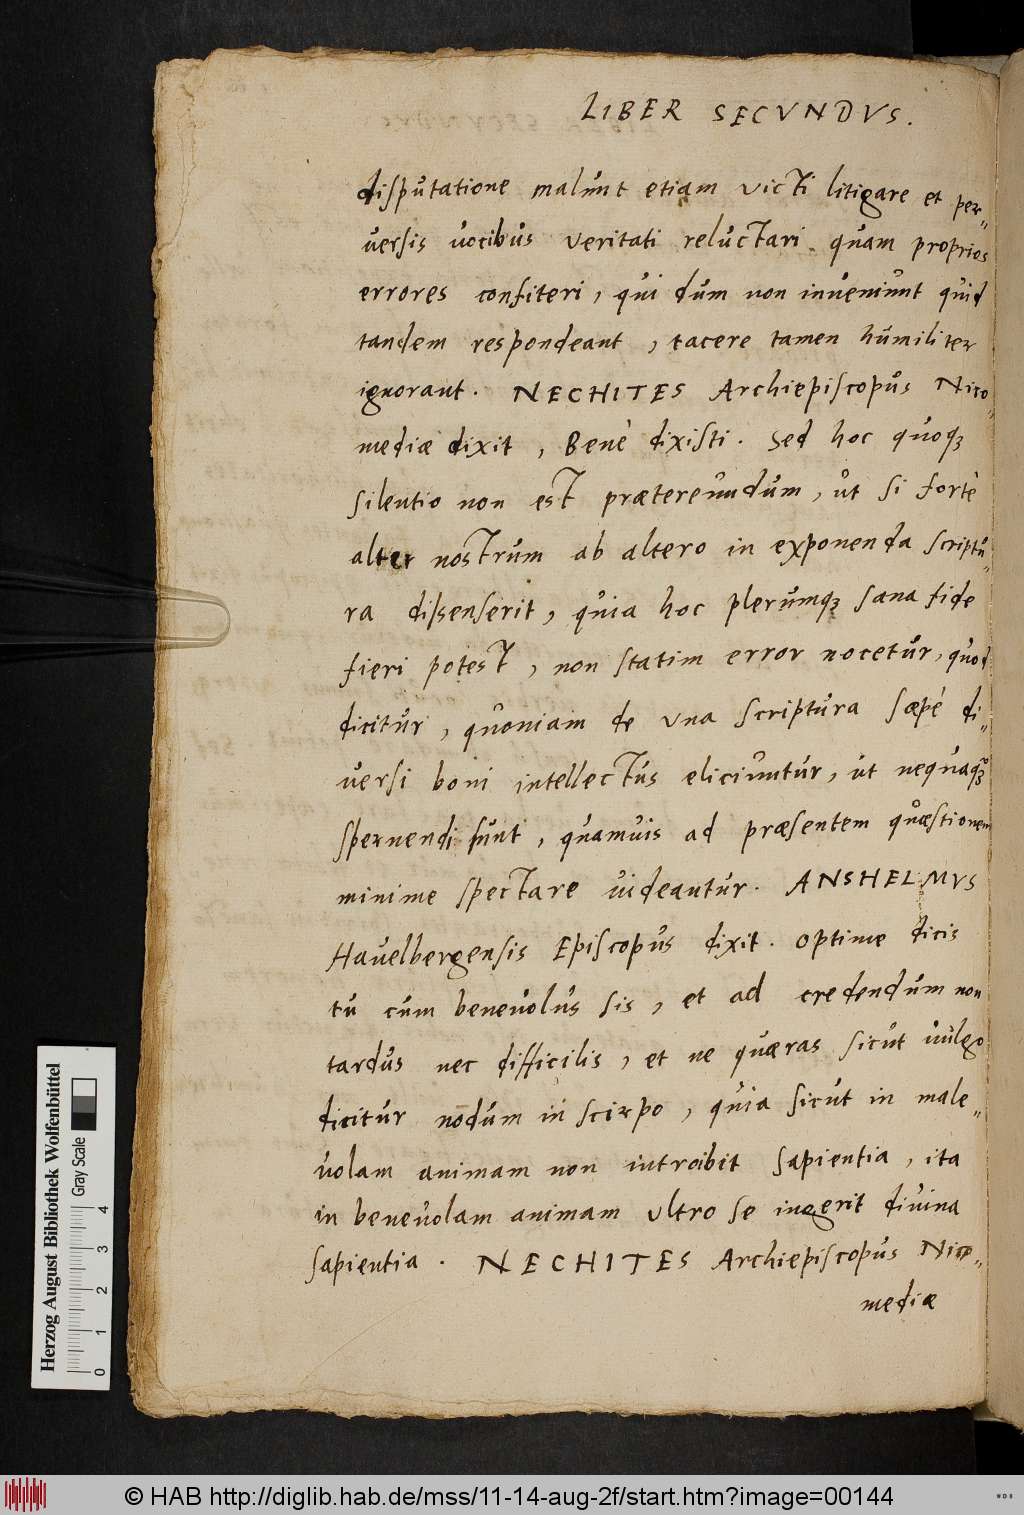 LIBER SECVNDVS.
disputatione malunt etiam victi litigare et per„
versis vocibus veritati reluctari quam proprios
errores confiteri, qui dum non inveniunt quid
tandem respondeant, tacere tamen humiliter
ignorant. NECHITES Archiepiscopus Nico„
mediæ dixit, Benè dixisti. Sed hoc quoqꝫ
silentio non est prætereundum, ut si fortè
alter nostrum ab altero in exponenda scriptu„
ra dissenserit, quia hoc plerumqꝫ sana fide
fieri potest, non statim error nocetur, quod
dicitur, quoniam de una scriptura sæpè di„
versi boni intellectus eliciuntur, ut nequaqꝫ̃
spernendi sunt, quamvis ad præsentem quæstionem
minime spectare videantur. ANSHELMVS
Havelbergensis Episcopus dixit. Optime dicis
tu cum benevolus sis, et ad credendum non
tardus nec difficilis, et ne quæras sicut vulgo
dicitur nodum in scirpo, quia sicut in male„
volam animam non introibit sapientia, ita
in benevolam animam ultro se ingerit divina
sapientia. NECHITES Archiepiscopus Nico„
mediæ
Herzog August Bibliothek Wolfenbüttel
Gray Scale
0 1 2 3 4
© HAB http://diglib.hab.de/mss/11-14-aug-2f/start.htm?image=00144